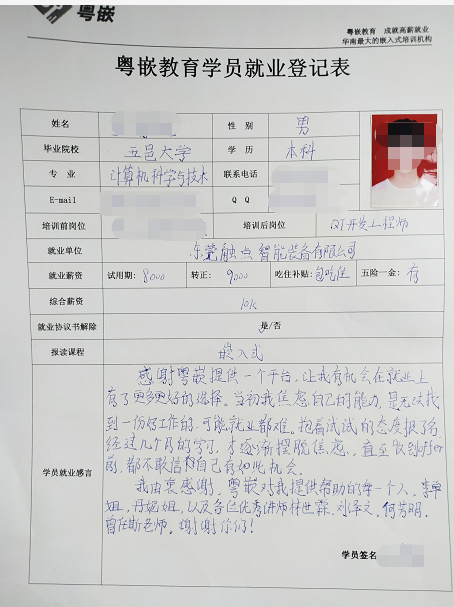 粤嵌
粤嵌教育 成就高薪就业
华南最大的嵌入式培训机构
粤嵌教育学员就业登记表
姓名 性 别 男
毕业院校 五邑大学 学 历 本科
专 业 计算机科学与技术 联系电话
E-mail Q Q
培训前岗位 培训后岗位 QT开发工程师
就业单位 东莞触点智能装备有限公司
就业薪资 试用期: 8000 转正: 9000 吃住补贴: 包吃住 五险一金: 有
综合薪资 10k
就业协议书解除 是/否
报读课程 嵌入式
学员就业感言
感谢粤嵌提供一个平台，让我有机会在就业上
有了更多更好的选择。当初我焦虑自己的能力，是无法找
到一份好工作的，可能就业都难。抱着试试的态度报了名
经过几个月的学习，才逐渐摆脱焦虑，直至收到offer
前，都不敢信自己有如此机会。
我由衷感谢，粤嵌对我提供帮助的每一个人，李单
姐，丹妮姐，以及各位优秀讲师林世霖，刘泽文，何芳明，
曾在斯老师。谢谢你们！
学员签名